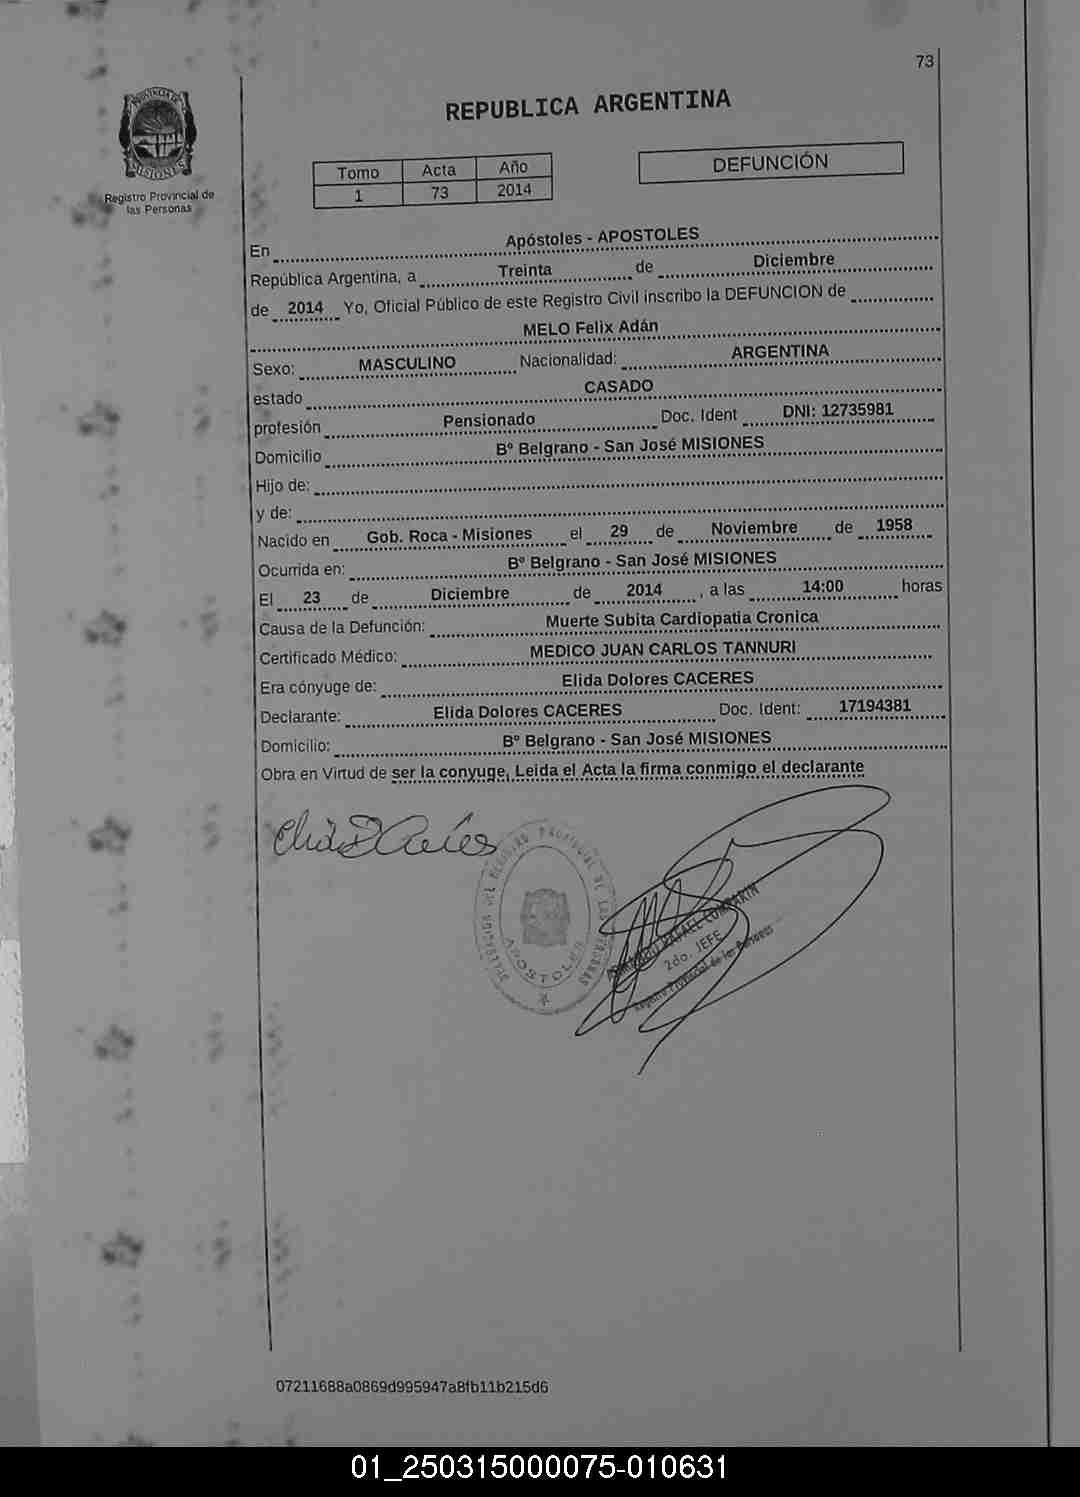 73
PROVINCIA DE
MISIONES
Registro Provincial de
las Personas
REPUBLICA ARGENTINA
Tomo Acta Año
1 73 2014
DEFUNCIÓN
En Apóstoles - APOSTOLES
República Argentina, a Treinta de Diciembre
de 2014 Yo, Oficial Público de este Registro Civil inscribo la DEFUNCION de
MELO Felix Adán
Sexo: MASCULINO Nacionalidad: ARGENTINA
estado CASADO
profesión Pensionado Doc. Ident DNI: 12735981
Domicilio Bº Belgrano - San José MISIONES
Hijo de:
y de:
Nacido en Gob. Roca - Misiones el 29 de Noviembre de 1958
Ocurrida en: Bº Belgrano - San José MISIONES
El 23 de Diciembre de 2014, a las 14:00 horas
Causa de la Defunción: Muerte Subita Cardiopatia Cronica
Certificado Médico: MEDICO JUAN CARLOS TANNURI
Era cónyuge de: Elida Dolores CACERES
Declarante: Elida Dolores CACERES Doc. Ident: 17194381
Domicilio: Bº Belgrano - San José MISIONES
Obra en Virtud de ser la conyuge, Leida el Acta la firma conmigo el declarante
DEL REGISTRO PROVINCIAL DE LAS PERSONAS
APOSTOLES
RAFAEL
2do. JEFE
Registro Provincial de las Personas
07211688a0869d995947a8fb11b215d6
01_250315000075-010631